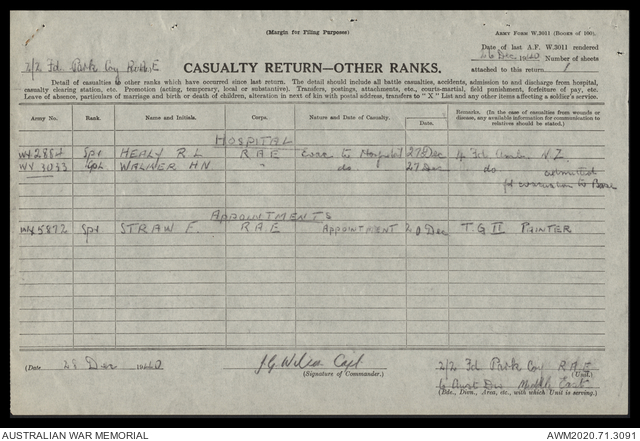 (Margin for Filing Purposes)
ARMY FORM W.3011 (BOOKS OF 100).
Date of last A.F. W.3011 rendered
26 Dec 1940 Number of sheets
attached to this return 1
2/2 Fd Park Coy
CASUALTY RETURN—OTHER RANKS.
Detail of casualties to other ranks which have occurred since last return. The detail should include all battle casualties, accidents, admission to and discharge from hospital,
casualty clearing station, etc. Promotion (acting, temporary, local or substantive). Transfers, postings, attachments, etc., courts-martial, field punishment, forfeiture of pay, etc.
Leave of absence, particulars of marriage and birth or death of children, alteration in next of kin with postal address, transfers to "X" List and any other items affecting a soldier's service.
Army No. Rank. Name and Initials. Corps. Nature and Date of Casualty. Date. Remarks. (In the case of casualties from wounds or disease, any available information for communication to relatives should be stated.)
HOSPITAL
Spr HEALY R L R A E Evac to Hospital 27 Dec 4 Fd Amb N.Z.
Cpl WALKER HN " do 27 Dec do admitted
for evacuation to Base
APPOINTMENTS
Spr STRAW F. R.A.E APPOINTMENT 20 Dec T.G II PAINTER
(Date 28 Dec 1940
Capt
(Signature of Commander.)
2/2 Fd Park Coy R A E
(Unit.)
6 Aust Div Middle East
(Bde., Divn., Area, etc., with which Unit is serving.)
AUSTRALIAN WAR MEMORIAL
AWM2020.71.3091